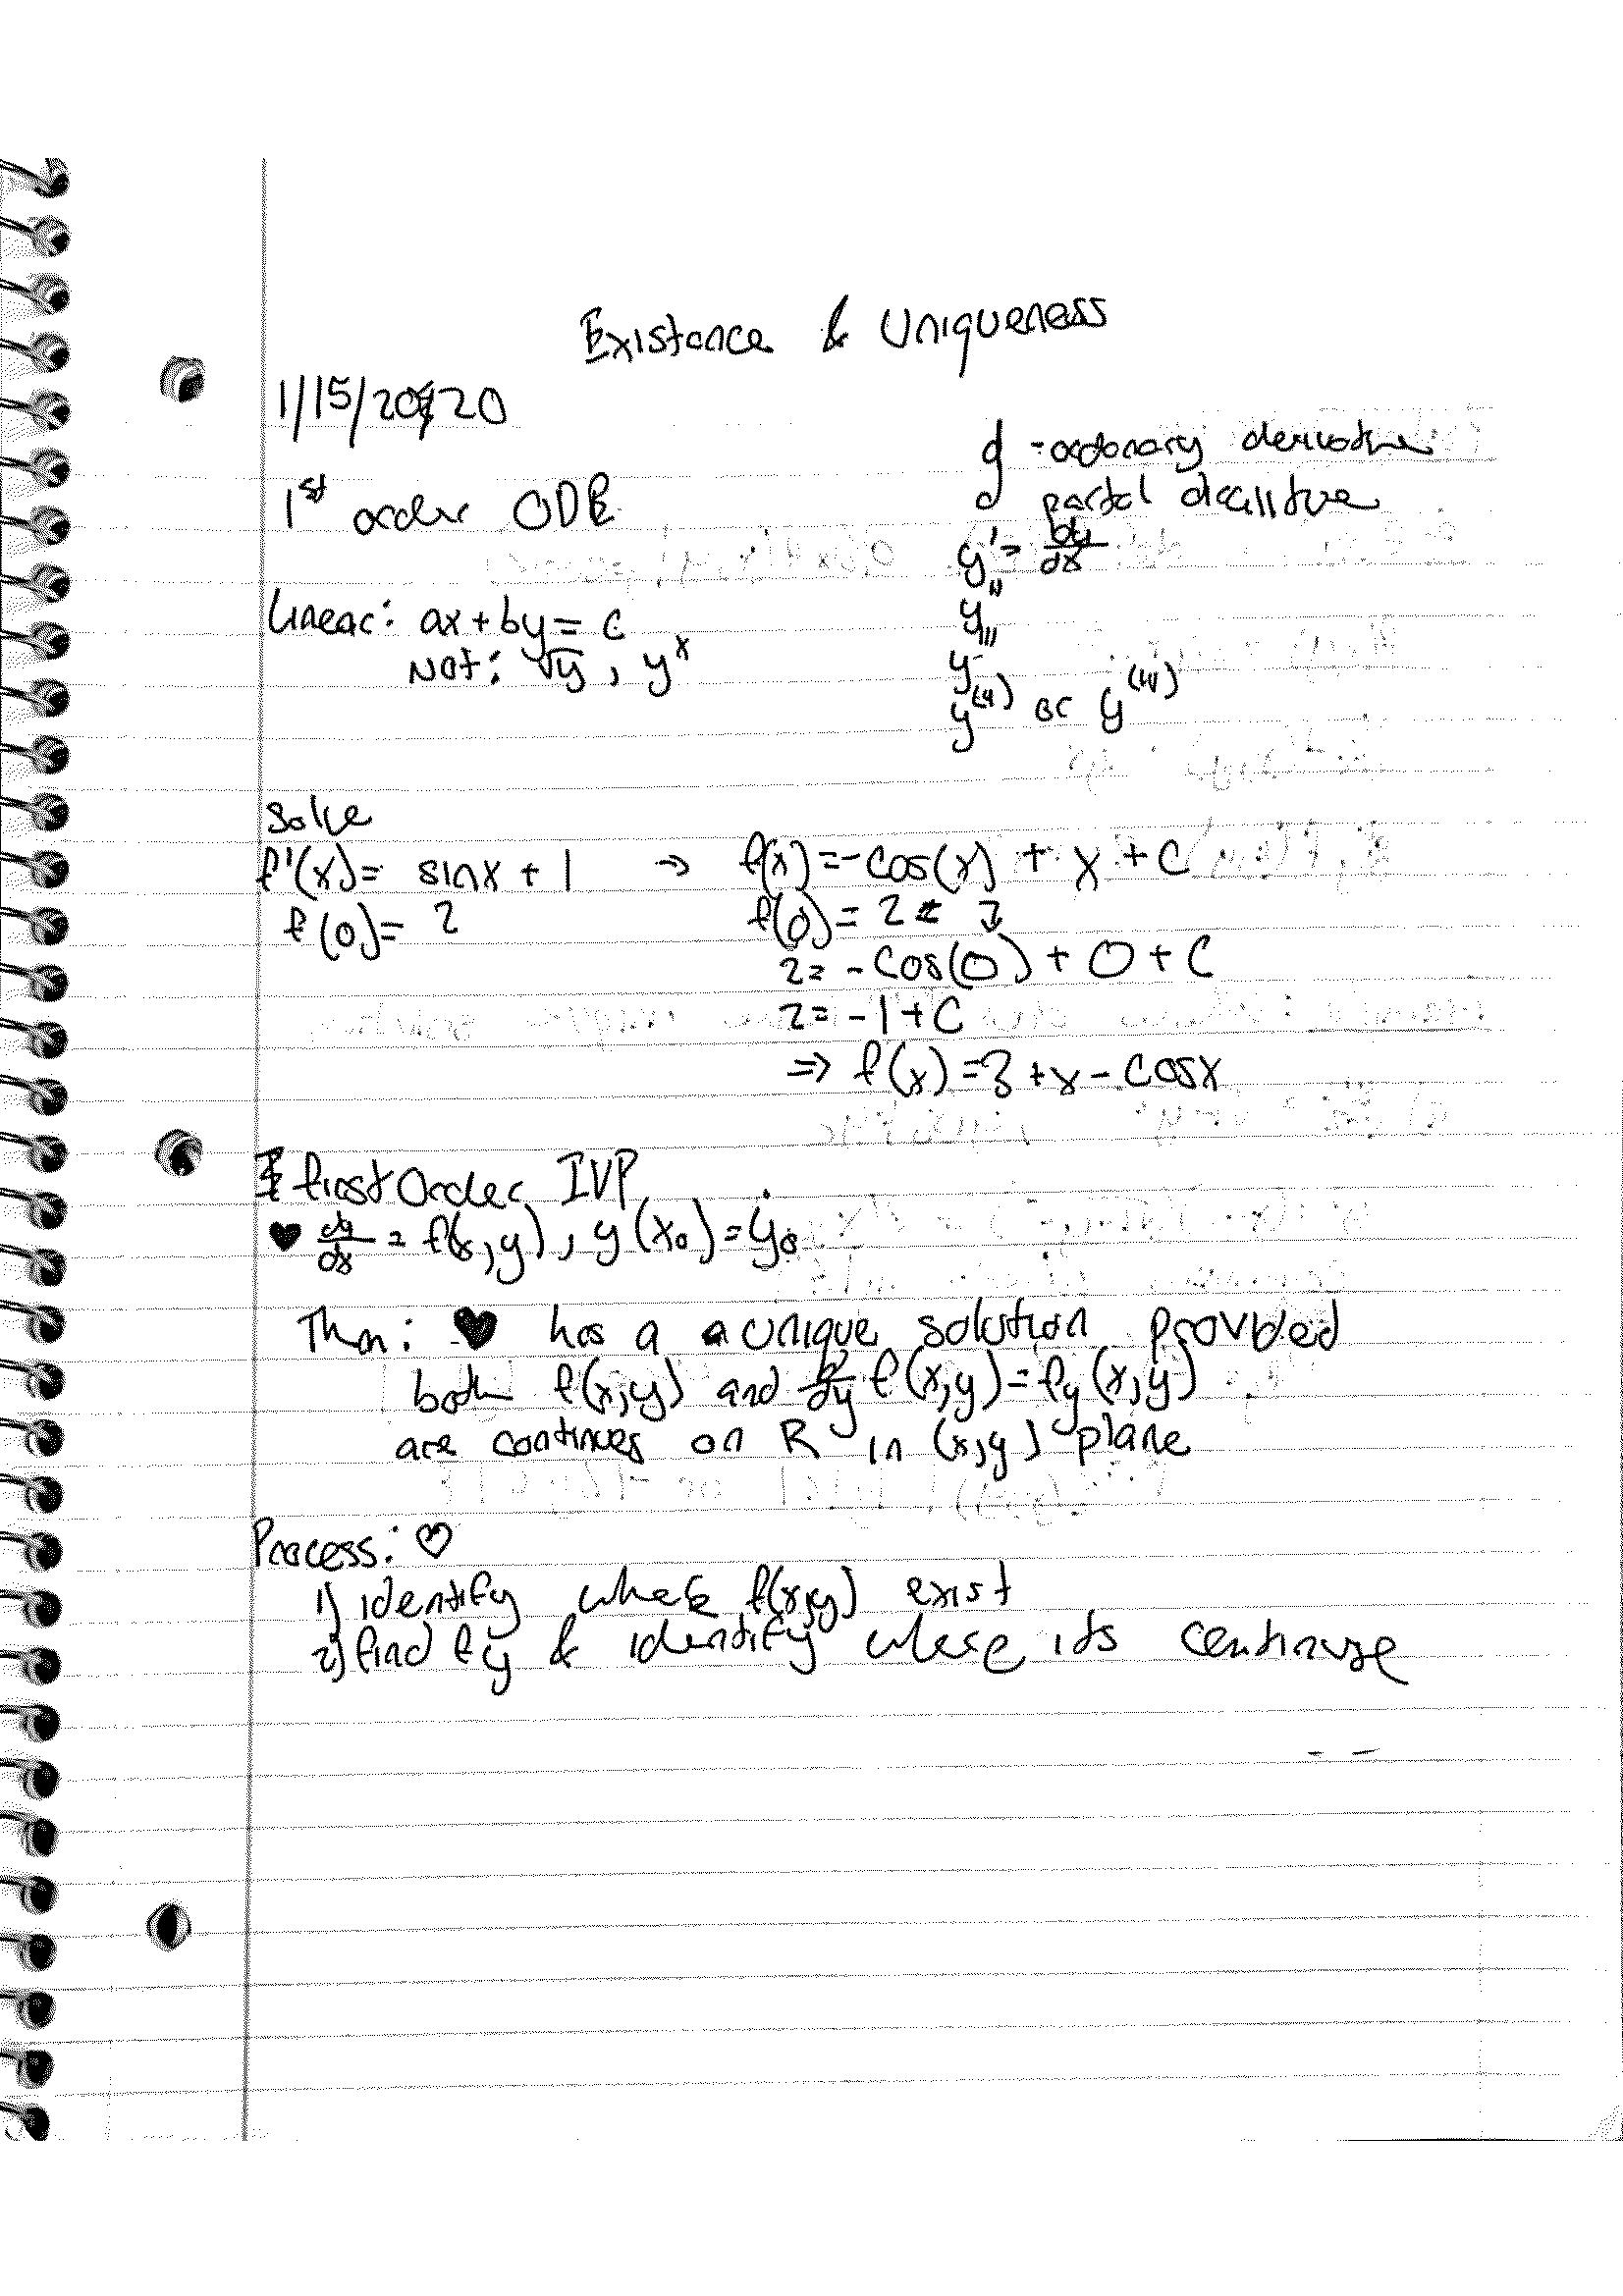 Existance & Uniqueness
1/15/2020
1st order ODE
d - ordonary derivative
∂ partal deriitive
y' = dy/dx
y''
y'''
y(4) or y(iv)
Linear: ax + by = c
Not: √y , y^x
Solve
f'(x) = sinx + 1 → f(x) = -cos(x) + x + C
f(0) = 2
f(0) = 2
2 = -cos(0) + 0 + C
2 = -1 + C
⇒ f(x) = 3 + x - cosx
first Order IVP
♥ dy/dx = f(x,y), y(x₀) = y₀
Thm: ♥ has a unique solution provided
both f(x,y) and ∂/∂y f(x,y) = fy(x,y)
are continues on R in (x,y) plane
Process: ♡
1) identify where f(x,y) exist
2) find fy & identify where its continuse